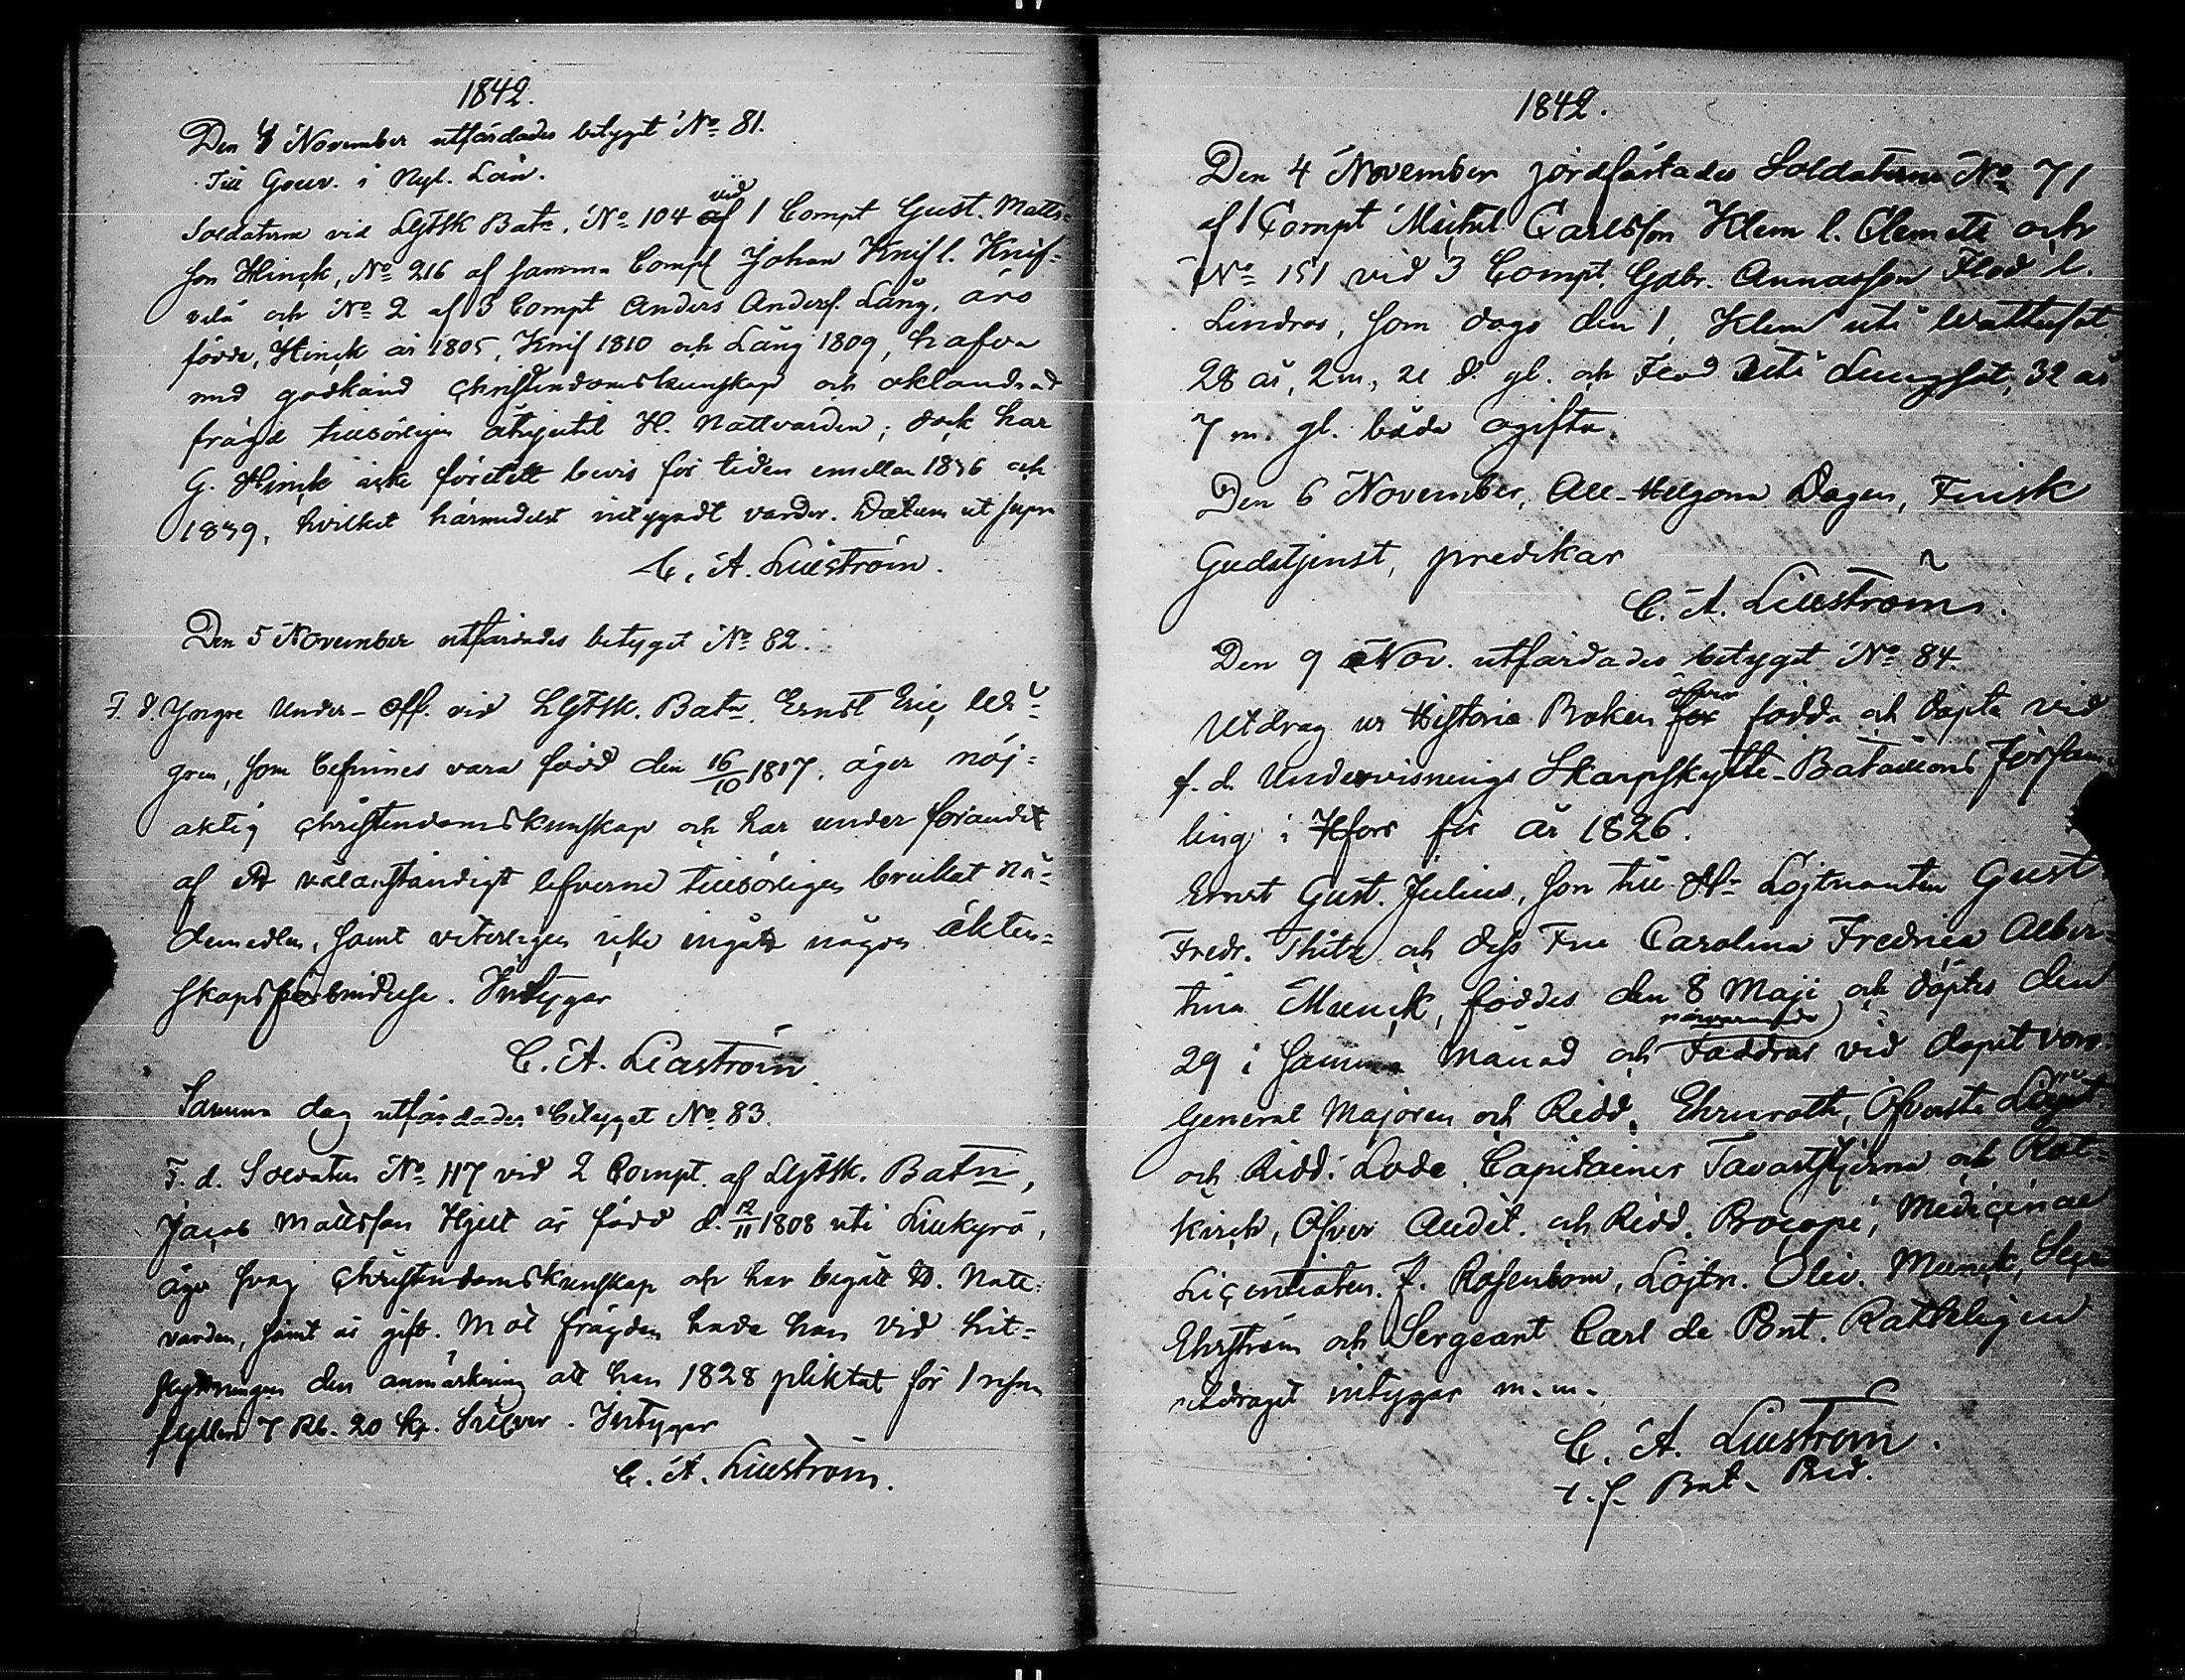 1842.
Den 4 November utfärdades betyget No 81.
Till Gouv. i Nyl. Län.
Soldaterne vid LGFSk Batn. No 104 vid 1 Compt Gust. Matts-
son Hinck, No 216 af samma Compt Johan Knif l. Knif-
velä och No 2 af 3 Compt Anders Anderss. Lång, äro
födde, Hinck år 1805, Knif 1810 och Lång 1809, hafva
med godkänd christendomskunskap och oklandrad
frägd tillsörligen åtnjutit H. Nattvarden; dock har
G. Hinck icke företett bevis för tiden emellan 1836 och
1839, hvilket härmedelst intygadt varder. Datum ut supra
C. A. Liliström.
Den 5 November utfärdades betyget No 82.
F. d. Yngre Under-Off. vid LGFSk. Batn Ernst Eric
gren, som befinnes vara född den 16/10 1817, äger nöj-
aktig christendomskunskap och har under förandet
af ett välanständigt lefverne tillsörligen brukat nå-
demedlen, samt veterligen icke ingått någon äkten-
skapsförbindelse. Intygar
C. A. Liliström
Samma dag utfärdades betyget No 83.
F. d. Soldaten No 117 vid 2 Compt. af LGFSk. Batn,
Jacob Mattsson Hjelt är född d. 12/11 1808 uti Lillkyrö,
äger svag christendomskunskap och har begått H. Natt-
varden, samt är gift. Mot frägden hade han vid hit-
flyttningen den anmärkning att han 1828 pliktat för 1 resan
fylleri 7 Rb. 20 kp. Silfver. Intygar
C. A. Liliström.
1842.
Den 4 November jordfästades Soldaterne No 71
af 1 Compt Michel Carlsson Klem l. Clemets och
No 151 vid 3 Compt. Gabr. Annasson Flod l.
Lindros, som dogo den 1, Klem uti Wattusot
28 år, 2 m., 21 d. gl. och Flod uti Lungsot, 32 år
7 m. gl. båda ogifta.
Den 6 November, All-Helgona Dagen, Finsk
Gudstjenst, predikar
C. A. Liliström.
Den 9 Nov. utfärdades betyget No 84
Utdrag ur Historie Boken öfver födda och döpta vid
f. d. Undervisnings Skarpskytte-Bataillons försam-
ling i Hfors för år 1826.
Ernst Gust. Julius, son till Hr Löjtnanten Gust.
Fredr. Thitz och dess Fru Carolina Fredrica Alber-
tina Munck, föddes den 8 Maji och döptes den
29 i samma månad och närvarande Faddrar vid dopet voro
General Majoren och Ridd. Ehrnroth, Öfverste Löjtn.
och Ridd. Lode, Capitainer Tavaststjerna och Rot-
kirch, Öfver Audit. och Ridd. Procopé, Medicinae
Licentiaten J. Rosenbom, Löjtn. Oliv. Munck, Secr.
Ehrström och Sergeant Carl de Pont. Rättheligen
utdraget intygar m. m.
C. A. Liliström.
t. f. Bat. Pred.